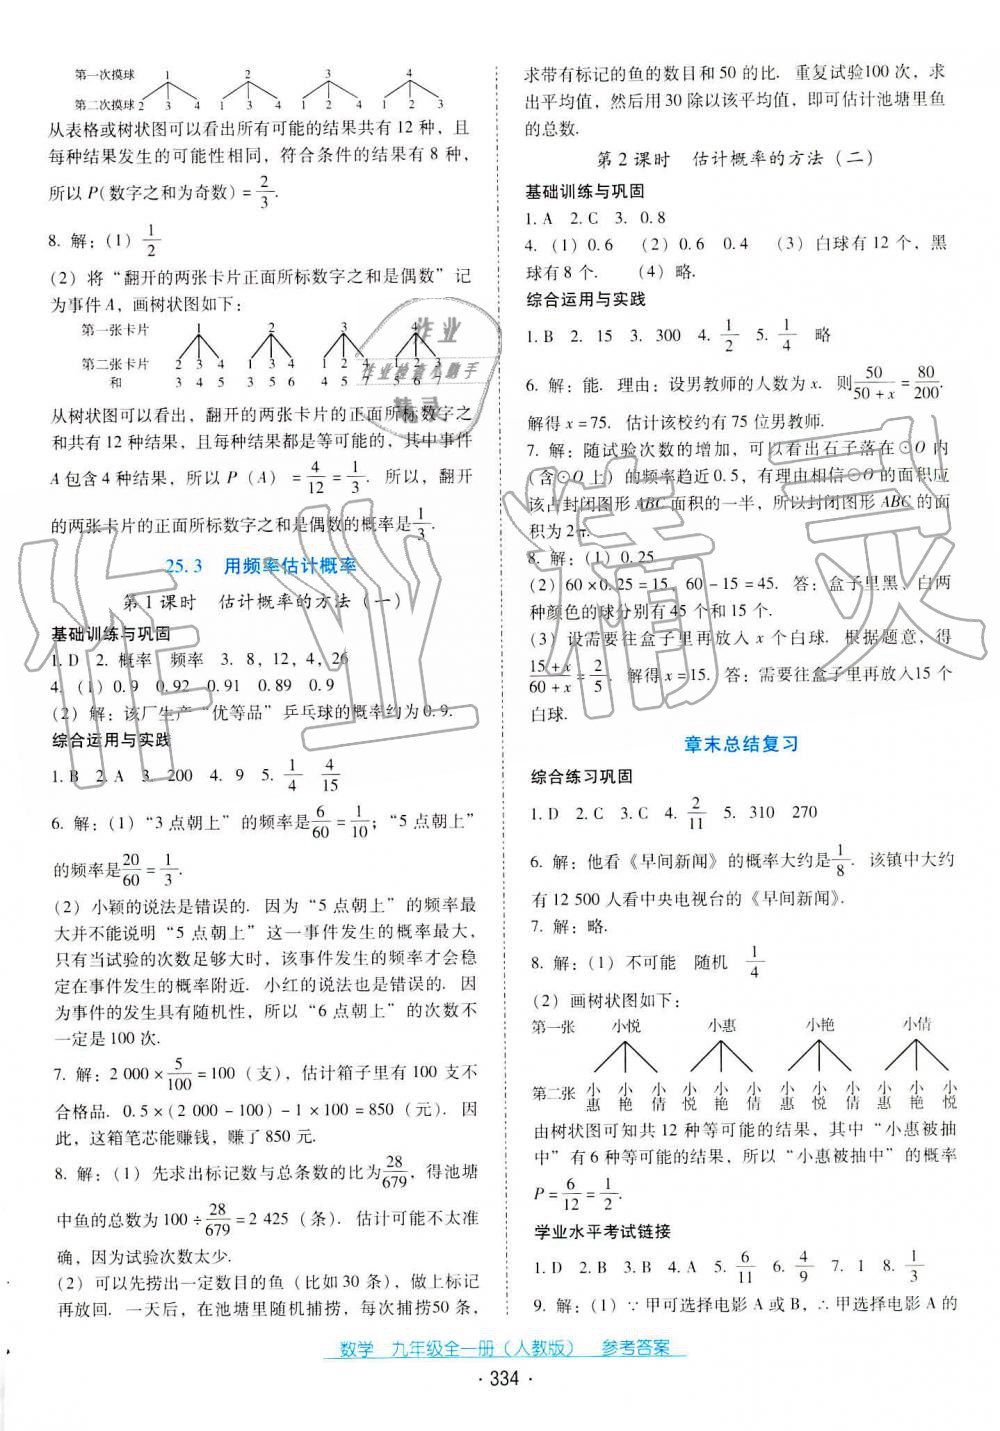 第一次摸球 1 2 3 4
第二次摸球 2 3 4 1 3 4 1 2 4 1 2 3
从表格或树状图可以看出所有可能的结果共有 12 种，且
每种结果发生的可能性相同，符合条件的结果有 8 种，
所以 P(数字之和为奇数) = 2/3.
8. 解：(1) 1/2
(2) 将“翻开的两张卡片正面所标数字之和是偶数”记
为事件 A，画树状图如下：
第一张卡片 1 2 3 4
第二张卡片 2 3 4 1 3 4 1 2 4 1 2 3
和 3 4 5 3 5 6 4 5 7 5 6 7
从树状图可以看出，翻开的两张卡片的正面所标数字之
和共有 12 种结果，且每种结果都是等可能的，其中事件
A 包含 4 种结果，所以 P (A) = 4/12 = 1/3. 所以，翻开
的两张卡片的正面所标数字之和是偶数的概率是 1/3.
25.3 用频率估计概率
第 1 课时 估计概率的方法 (一)
基础训练与巩固
1. D 2. 概率 频率 3. 8，12，4，26
4. (1) 0.9 0.92 0.91 0.89 0.9
(2) 解：该厂生产“优等品”乒乓球的概率约为 0.9.
综合运用与实践
1. B 2. A 3. 200 4. 9 5. 1/4 4/15
6. 解：(1) “3 点朝上”的频率是 6/60 = 1/10；“5 点朝上”
的频率是 20/60 = 1/3.
(2) 小颖的说法是错误的. 因为“5 点朝上”的频率最
大并不能说明“5 点朝上”这一事件发生的概率最大，
只有当试验的次数足够大时，该事件发生的频率才会稳
定在事件发生的概率附近. 小红的说法也是错误的. 因
为事件的发生具有随机性，所以“6 点朝上”的次数不
一定是 100 次.
7. 解：2 000 × 5/100 = 100 (支)，估计箱子里有 100 支不
合格品. 0.5 × (2 000 - 100) - 1 × 100 = 850 (元). 因
此，这箱笔芯能赚钱，赚了 850 元.
8. 解：(1) 先求出标记数与总条数的比为 28/679，得池塘
中鱼的总数为 100 ÷ 28/679 = 2 425 (条). 估计可能不太准
确，因为试验次数太少.
(2) 可以先捞出一定数目的鱼 (比如 30 条)，做上标记
再放回. 一天后，在池塘里随机捕捞，每次捕捞50 条，
求带有标记的鱼的数目和 50 的比. 重复试验100 次，求
出平均值，然后用 30 除以该平均值，即可估计池塘里鱼
的总数.
第 2 课时 估计概率的方法 (二)
基础训练与巩固
1. A 2. C 3. 0.8
4. (1) 0.6 (2) 0.6 0.4 (3) 白球有 12 个，黑
球有 8 个. (4) 略.
综合运用与实践
1. B 2. 15 3. 300 4. 1/2 5. 1/4 略
6. 解：能. 理由：设男教师的人数为 x. 则 50/(50 + x) = 80/200.
解得 x = 75. 估计该校约有 75 位男教师.
7. 解：随试验次数的增加，可以看出石子落在⊙O 内
(含⊙O 上) 的频率趋近 0.5，有理由相信⊙O 的面积应
该占封闭图形 ABC 面积的一半，所以封闭图形 ABC 的面
积为 2π.
8. 解：(1) 0.25
(2) 60 × 0.25 = 15，60 - 15 = 45. 答：盒子里黑、白两
种颜色的球分别有 45 个和 15 个.
(3) 设需要往盒子里再放入 x 个白球. 根据题意，得
(15 + x)/(60 + x) = 2/5. 解得 x = 15. 答：需要往盒子里再放入15 个
白球.
章末总结复习
综合练习巩固
1. D 2. C 3. C 4. 2/11 5. 310 270
6. 解：他看《早间新闻》的概率大约是 1/8. 该镇中大约
有 12 500 人看中央电视台的《早间新闻》.
7. 解：略.
8. 解：(1) 不可能 随机 1/4
(2) 画树状图如下：
第一张 小悦 小惠 小艳 小倩
第二张 小惠 小艳 小倩 小悦 小艳 小倩 小悦 小惠 小倩 小悦 小惠 小艳
由树状图可知共 12 种等可能的结果，其中“小惠被抽
中”有 6 种等可能的结果，所以“小惠被抽中”的概率
P = 6/12 = 1/2.
学业水平考试链接
1. D 2. B 3. B 4. A 5. 6/11 6. 4/9 7. 1 8. 1/3
9. 解：(1) ∵ 甲可选择电影 A 或 B，∴ 甲选择电影 A 的
数学 九年级全一册（人教版） 参考答案
· 334 ·
作业精灵
作业
作业检查小助手
精灵